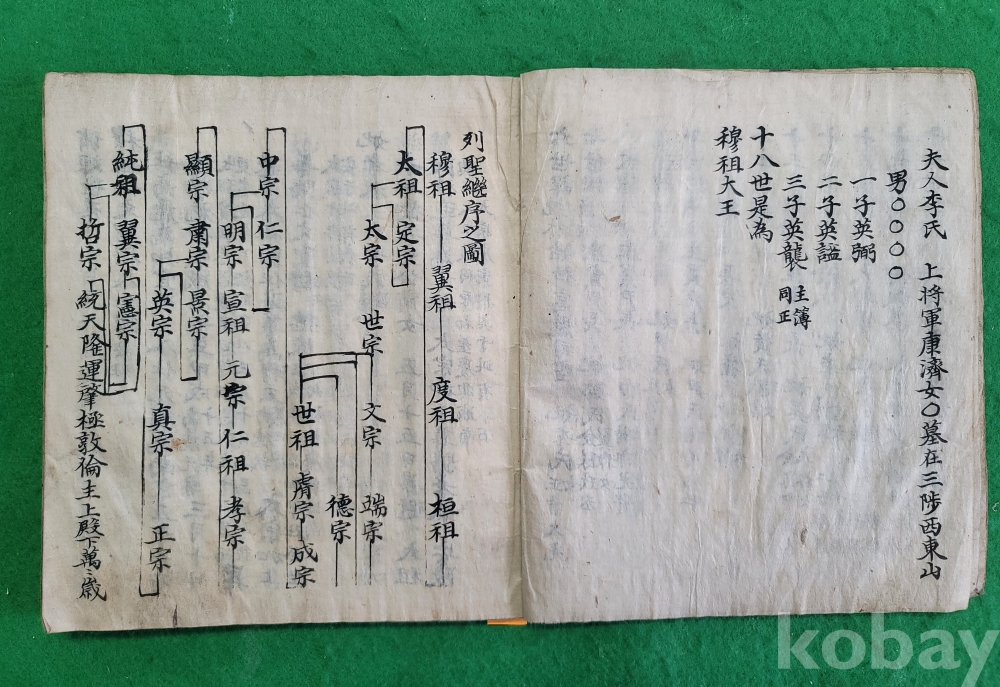 夫人李氏 上将軍康濟女〇墓在三陟西東山
男〇〇〇〇
一子英弼
二子英謐
三子英襲 主簿同正
十八世是為
穆祖大王
列聖繼序之圖
穆祖 翼祖 度祖 桓祖
太祖 定宗
太宗 世宗 文宗 端宗
德宗
世祖 睿宗 成宗
中宗 仁宗
明宗 宣祖 元宗 仁祖 孝宗
顯宗 肅宗 景宗
英宗 真宗 正宗
純祖 翼宗 憲宗
哲宗 統天隆運肇極敦倫主上殿下萬〻歲
kobay